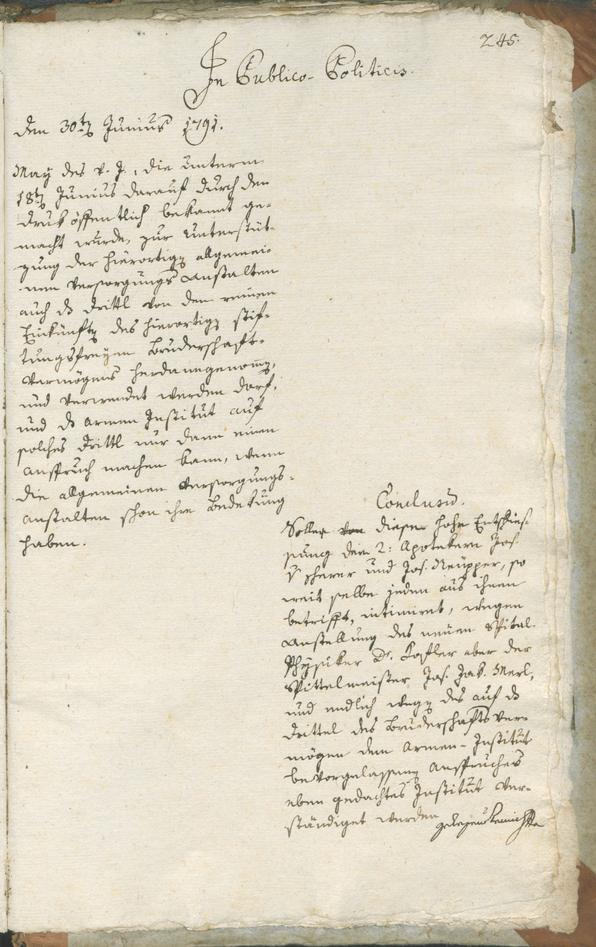 245.
In Publico-Politicis.
den 30t Junius 1791.
May des v. J., die unterm
18t Junius darauf durch den
Druk öffentlich bekannt ge-
macht wurde, zur Unterstüt-
zung der hierortig allgemei-
nen Versorgungs Anstalten
auch d Drittl von dem reinen
Einkünft des hierortig stif-
tungsfreyen Bruderschaft-
Vermögens herdanngenomm,
und verwendet werden darf,
und d Armen Institut auf
solches Drittl nur dann einen
Anspruch machen kann, wenn
die allgemeinen Versorgungs-
anstalten schon ihre Bedekung
haben.
Conclusum.
Solle von diese hohe Entschlies-
sung den 2: Apotekern Jos.
und Jos. so
weit selbe jeden aus ihnen
betrifft, intimirt, wegen
Anstellung des neuen Spital
Physiker Dr. aber der
Spittelmeister Jos. Jak. Merl,
und endlich weg des auf d
Drittel des Bruderschafts Ver-
mögen dem Armen-Institut
bevorgelassenen Anspruches
eben gedachtes Institut ver-
ständiget werden